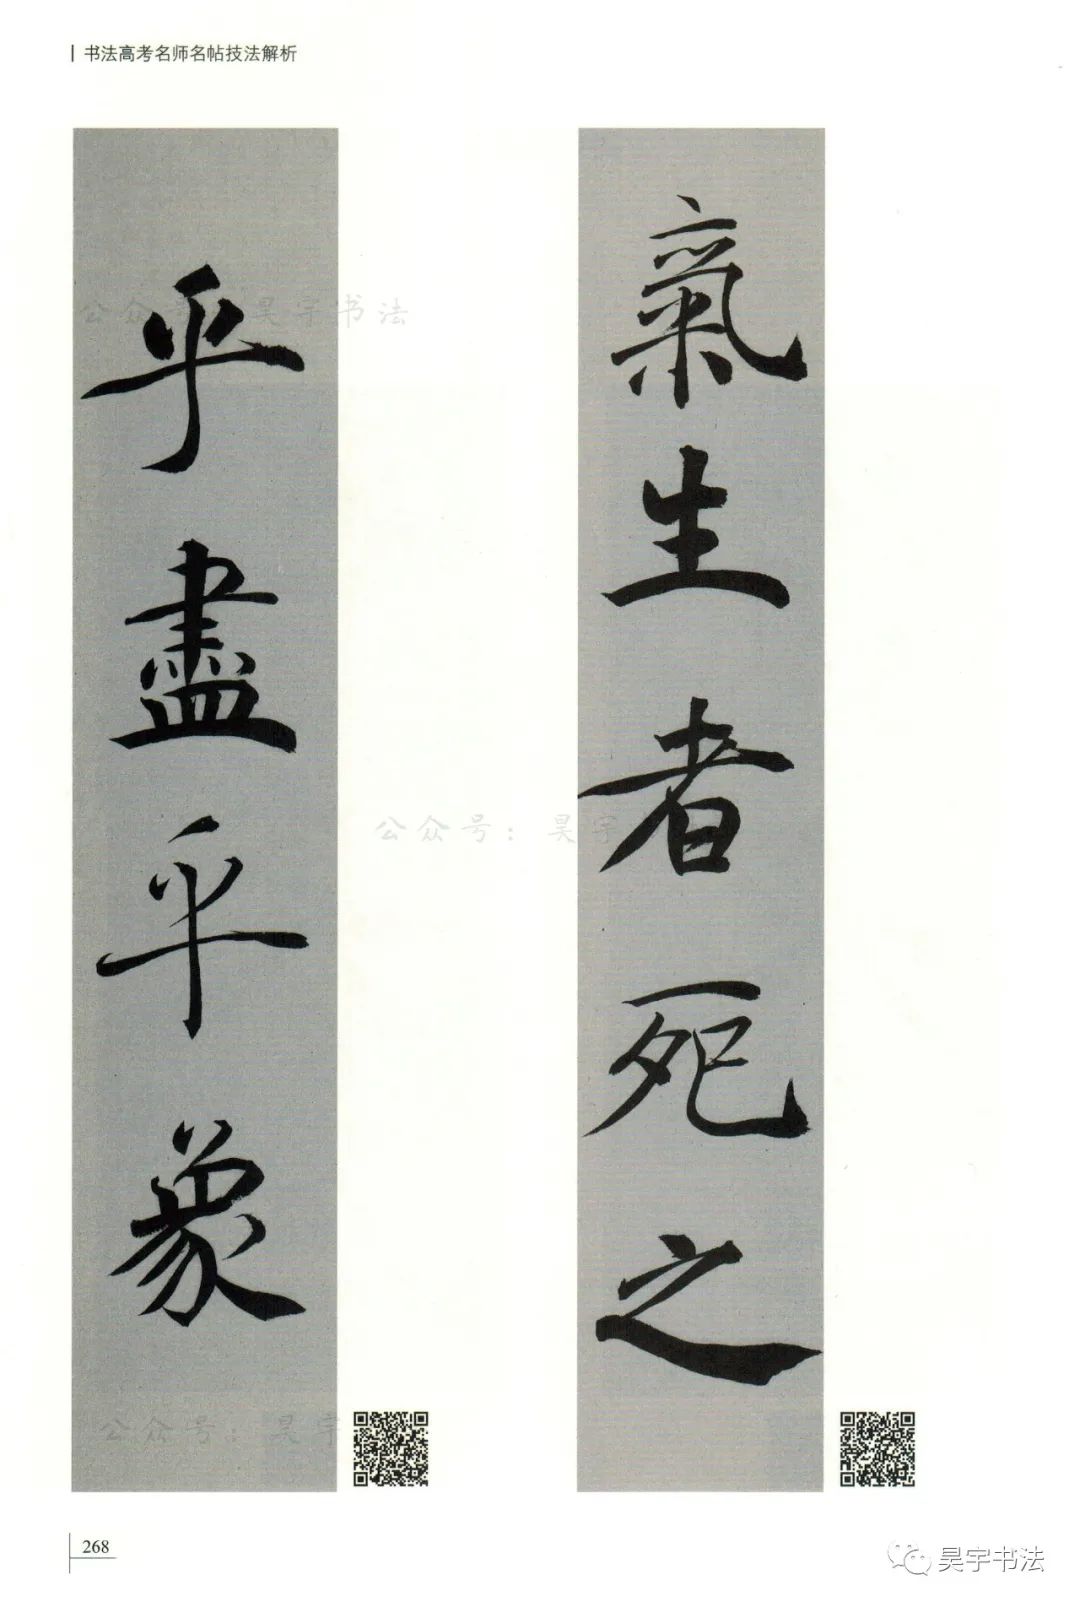 书法高考名师名帖技法解析
氣生者死之
乎盡乎象
公众号：昊宇书法
公众号：昊宇
公众号：昊宇
268
昊宇书法